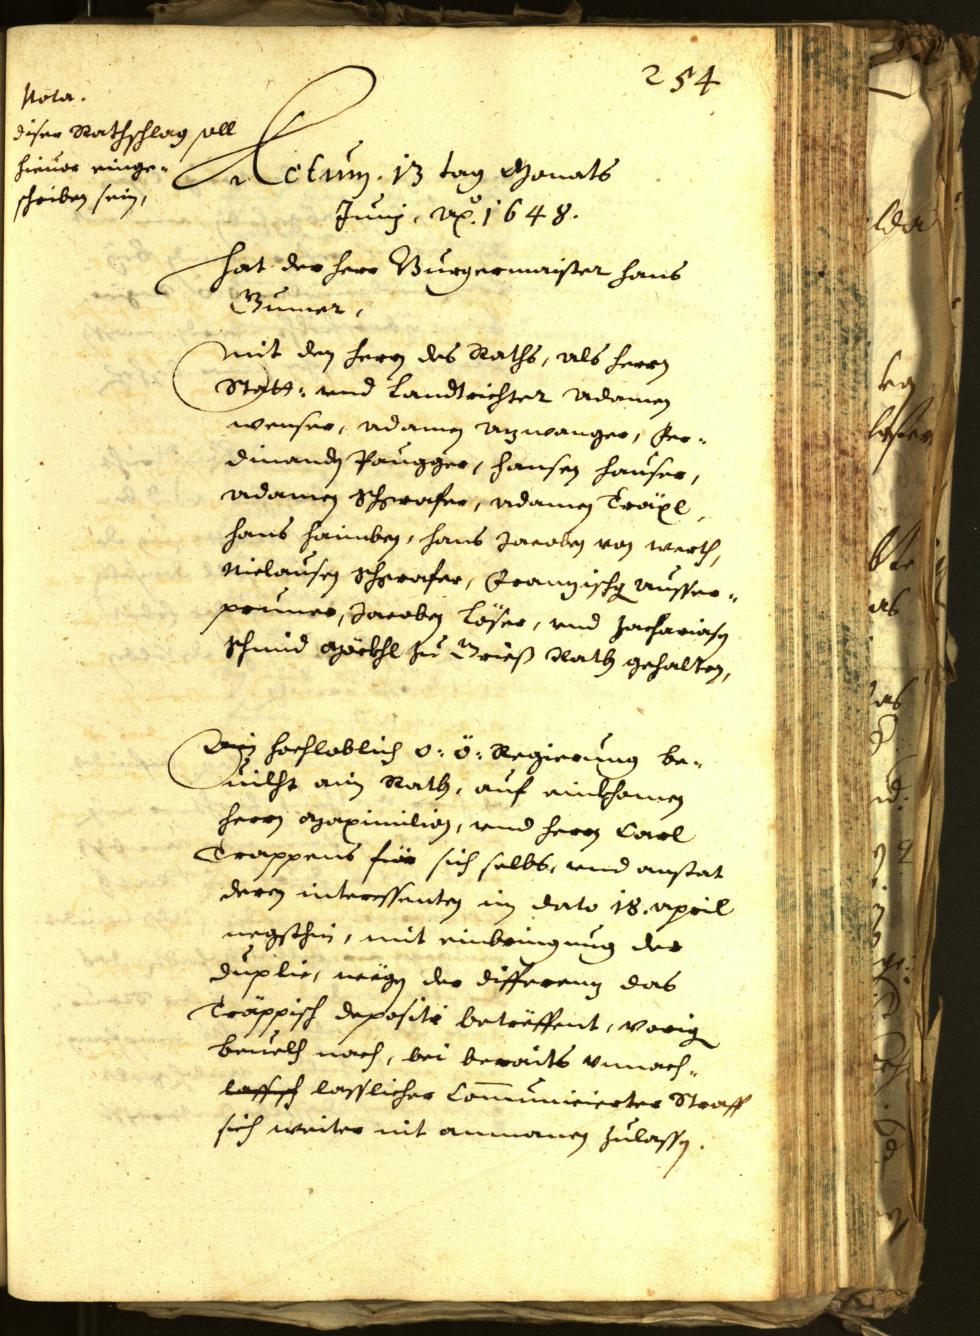 254
Nota.
diser Rathschlag soll
hieuor einge-
schriben sein,
Actum. 13 tag Monats
Junij, ao. 1648.
hat der herr Burgermaister hans
Gumer,
mit den herrn des Raths, als herrn
Statt- vnd Landtrichter Adamen
wenser, Adamen Anwanger, Fer-
dinandn Paugger, Hansen Hauser,
Adamen Schrafer, Adamen Träxl,
hans haimben, hans Jacoben von werth,
Niclausen Schrafer, Franzischg Ausser-
prunner, Jacoben Löser, vnd Zachariasn
Schmid Mörbhl zu Grieß Rath gehalten,
Ain hochloblich o: ö: Regierung be-
uilht ain Rath, auf einkhomen
herrn Maximilian, vnd herrn Carl
Trappens für sich selbs, vnd anstat
deren interessenten in dato 18. April
negsthin, mit einbringung der
duplic, wegen der differenz das
Träppisch depositi betreffent, vorig
beuelch nach, bei beraits vnnach-
lasslicher Communicierter Straff
sich weiter nit anmanen zulassn.